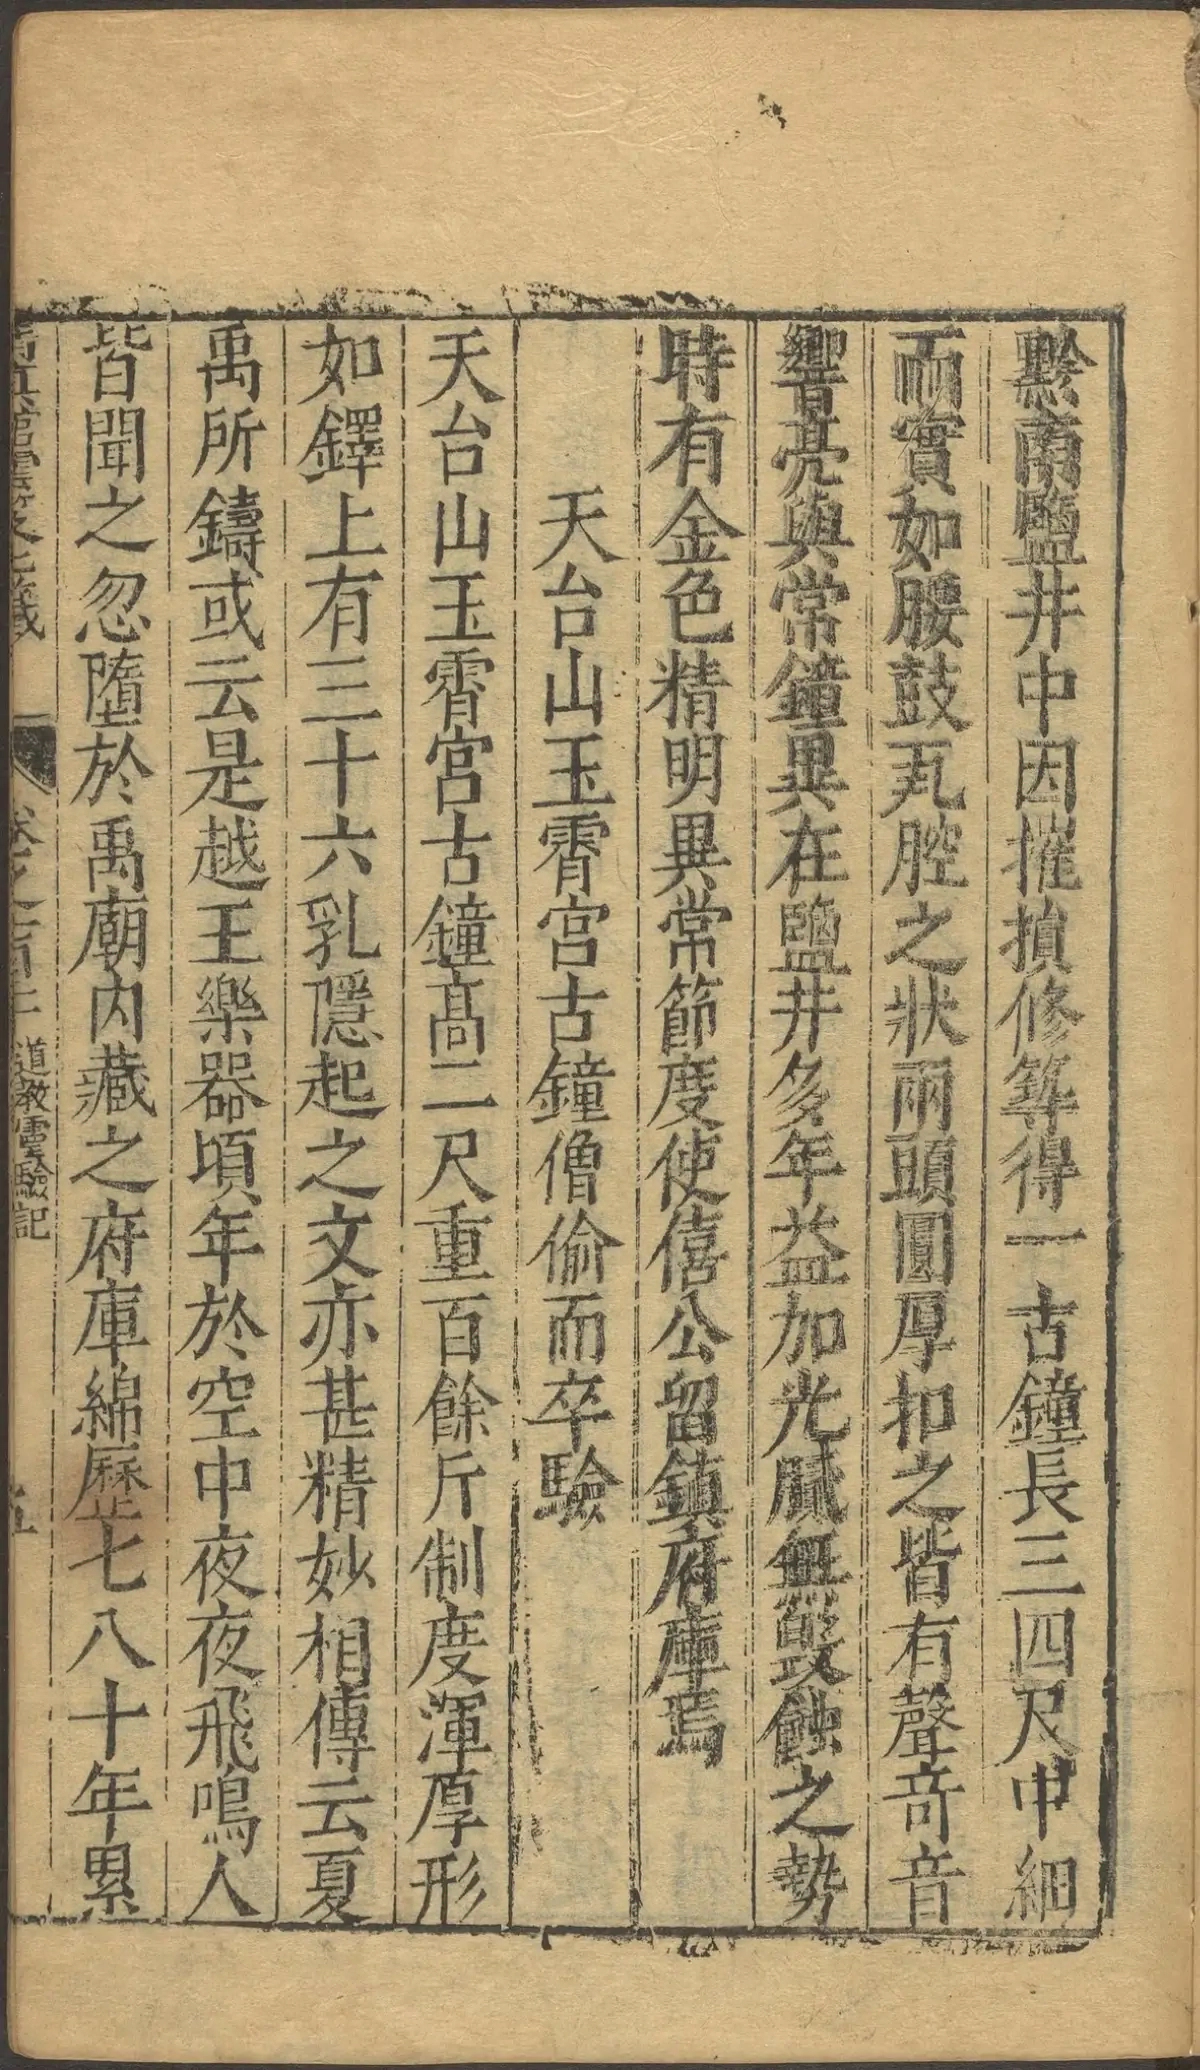 黔南鹽井中因摧損修筭得一古鐘長三四尺中細
而實如腰鼓瓦腔之狀兩頭圓厚扣之皆有聲奇音
響亮與常鐘異在鹽井多年益加光膩無毀蝕之勢
時有金色精明異常節度使僖公留鎮府庫焉
天台山玉霄宮古鐘僧偷而卒驗
天台山玉霄宮古鐘高二尺重百餘斤制度渾厚形
如鐸上有三十六乳隱起之文亦甚精妙相傳云夏
禹所鑄或云是越王樂器頃年於空中夜夜飛鳴人
皆聞之忽墮於禹廟內藏之府庫綿歷七八十年累
道教靈驗記